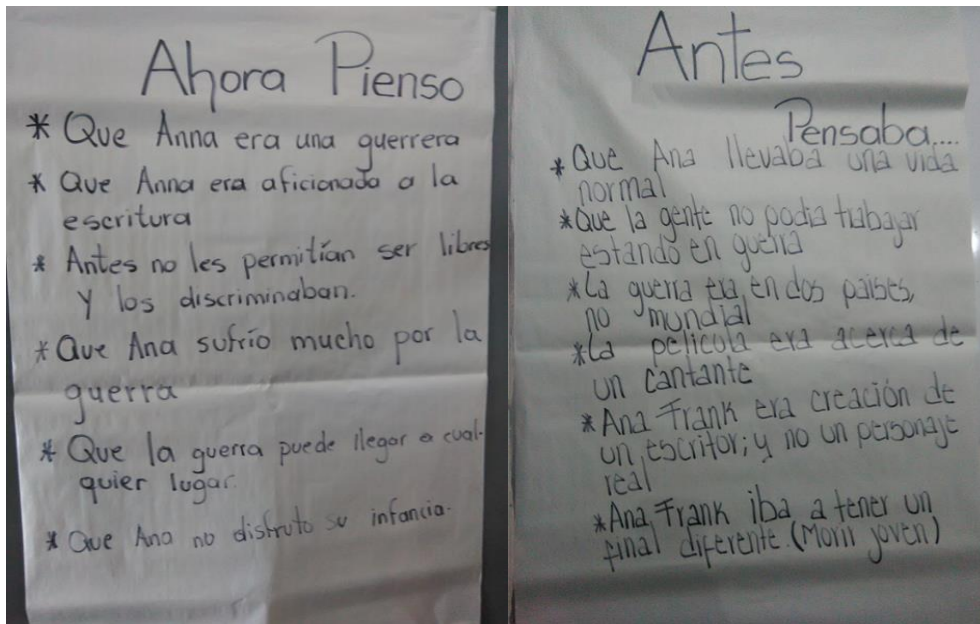 Ahora Pienso
* Que Anna era una guerrera
* Que Anna era aficionada a la
escritura
* Antes no les permitían ser libres
y los discriminaban.
* Que Ana sufrío mucho por la
guerra
* Que la guerra puede llegar a cual-
quier lugar.
* Que Ana no disfruto su infancia.
Antes
Pensaba....
* Que Ana llevaba una vida
normal
* Que la gente no podia trabajar
estando en guerra
* La guerra era en dos paises,
no mundial
* La pelicula era acerca de
un cantante
* Ana Frank era creación de
un escritor; y no un personaje
real
* Ana Frank iba a tener un
final diferente. (Morir joven)